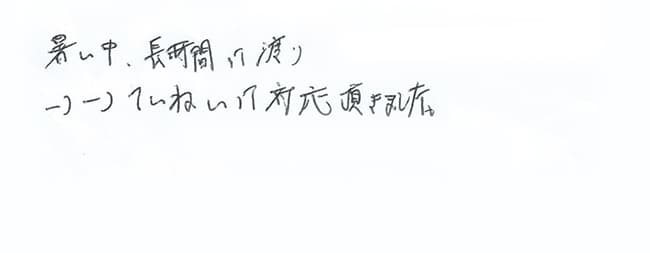 暑い中、長時間に渡り
一つ一つていねいに対応頂きました。